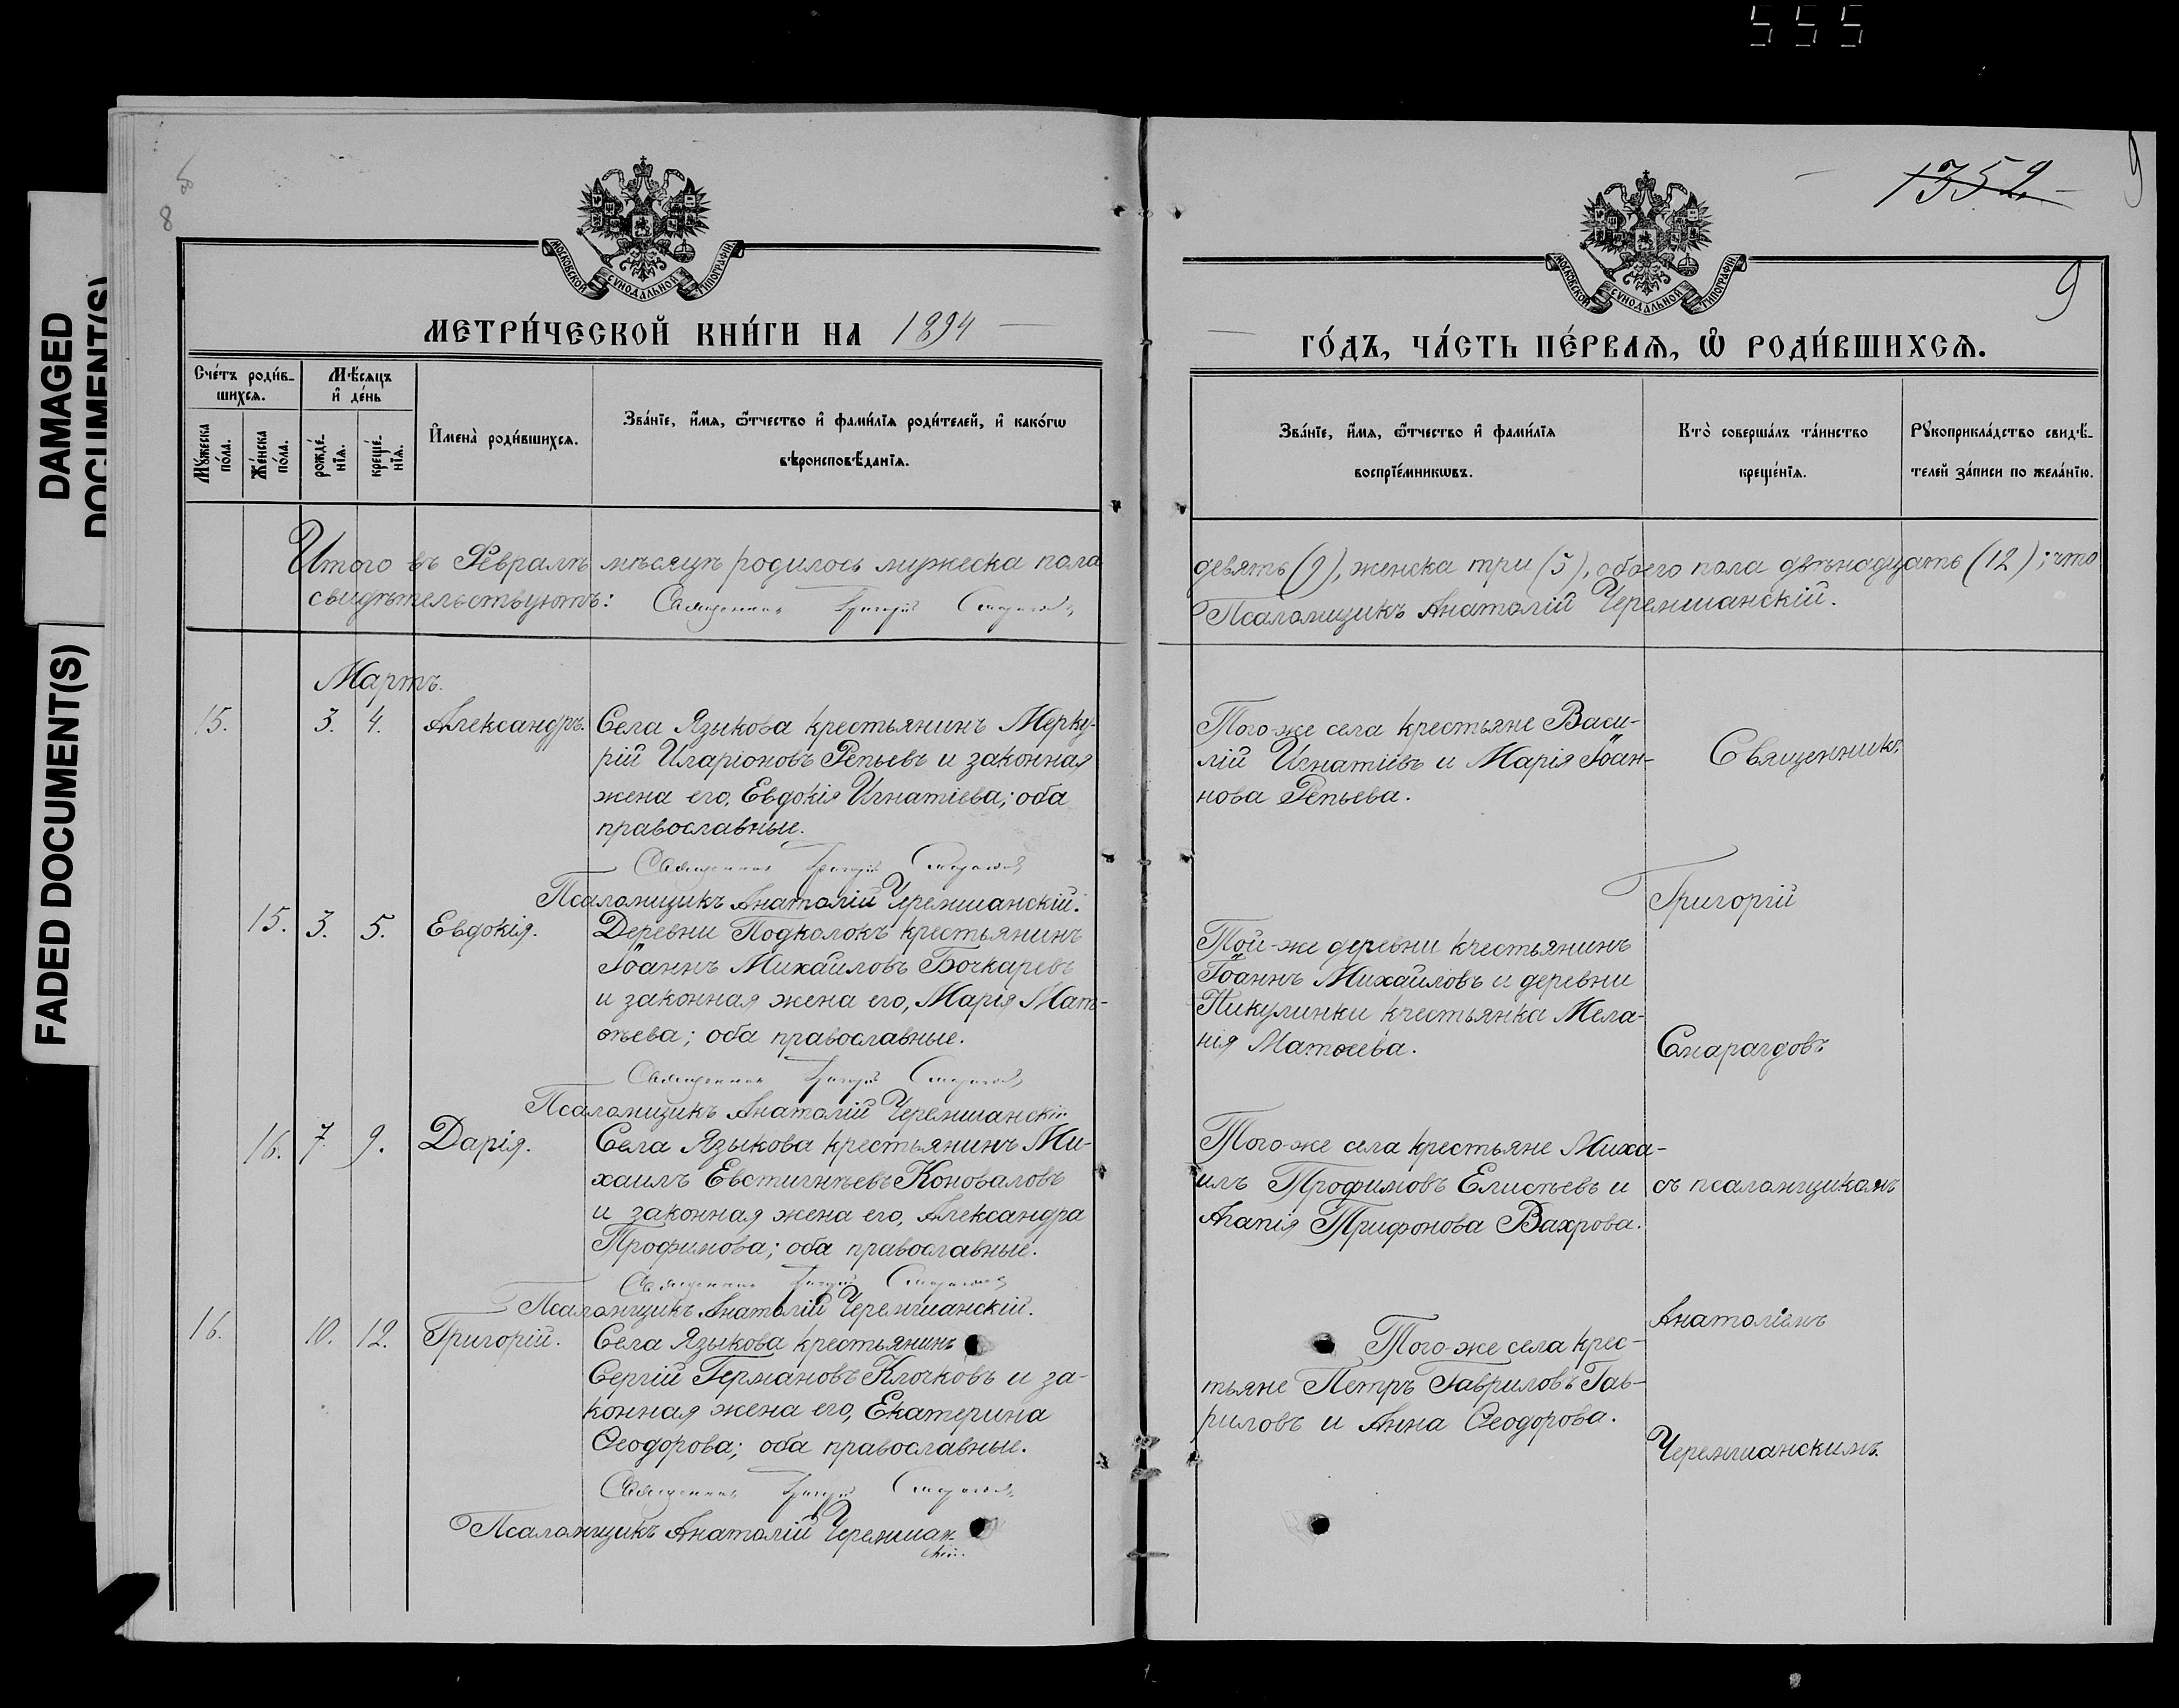 555
DAMAGED
DOCUMENT(S)
FADED DOCUMENT(S)
8
МОСКОВСКОЙ СУНОДАЛЬНОЙ ТИПОГРАФІИ
МЕТРИ́ЧЕСКОЙ КНИ́ГИ НА 1894
Сче́тъ роди́в-
шихсѧ.
Мꙋ́жеска
по́ла.
Же́нска
по́ла.
Мѣ́сѧцъ
и҆ де́нь
рожде́-
нїѧ.
креще́-
нїѧ.
И҆мена̀ роди́вшихсѧ.
Зва́нїе, и҆́мѧ, ѻ҆́тчество и҆ фами́лїѧ роди́телей, и҆ како́гѡ
вѣроисповѣ́данїѧ.
Итого въ Февралѣ мѣсяцѣ родилось мужеска пола
свидѣтельствуютъ: Священникъ Григорій Смарагдовъ
Мартъ.
15. 3. 4. Александръ. Села Языкова крестьянинъ Мерку-
рій Иларіоновъ Репьевъ и законная
жена его, Евдокія Игнатіева; оба
православные.
Священникъ Григорій Смарагдовъ
Псаломщикъ Анатолій Черемшанскій.
15. 3. 5. Евдокія. Деревни Подколокъ крестьянинъ
Іоаннъ Михаиловъ Бочкаревъ
и законная жена его, Марія Мат-
ѳѣева; оба православные.
Священникъ Григорій Смарагдовъ
Псаломщикъ Анатолій Черемшанскій
16. 7. 9. Дарія. Села Языкова крестьянинъ Ми-
хаилъ Евстигнѣевъ Коноваловъ
и законная жена его, Александра
Трофимова; оба православные.
Священникъ Григорій Смарагдовъ
Псаломщикъ Анатолій Черемшанскій.
16. 10. 12. Григорій. Села Языкова крестьянинъ
Сергій Германовъ Клочковъ и за-
конная жена его, Екатерина
Ѳеодорова; оба православные.
Священникъ Григорій Смарагдовъ
Псаломщикъ Анатолій Черемшан-
скій.
1352
9
МОСКОВСКОЙ СУНОДАЛЬНОЙ ТИПОГРАФІИ
9
ГО́ДЪ, ЧА́СТЬ ПЕ́РВАѦ, Ѡ҆ РОДИ́ВШИХСѦ.
Зва́нїе, и҆́мѧ, ѻ҆́тчество и҆ фами́лїѧ
воспрїе́мникѡвъ.
Кто̀ соверша́лъ та́инство
креще́нїѧ.
Рꙋкоприкла́дство свидѣ́-
телей за́писи по жела́нїю.
девять (9), женска три (3), обоего пола двѣнадцать (12); что
Псаломщикъ Анатолій Черемшанскій.
Того-же села крестьяне Васи-
лій Игнатіевъ и Марія Іоан-
нова Репьева.
Той-же деревни крестьянинъ
Іоаннъ Михаиловъ и деревни
Пикулинки крестьянка Мела-
нія Матѳеева.
Того-же села крестьяне Миха-
илъ Трофимовъ Елисѣевъ и
Агапія Трифонова Вахрова.
Того-же села крес-
тьяне Петръ Гавриловъ Гав-
риловъ и Анна Ѳеодорова.
Священникъ
Григорій
Смарагдовъ
съ псаломщикомъ
Анатоліемъ
Черемшанскимъ.